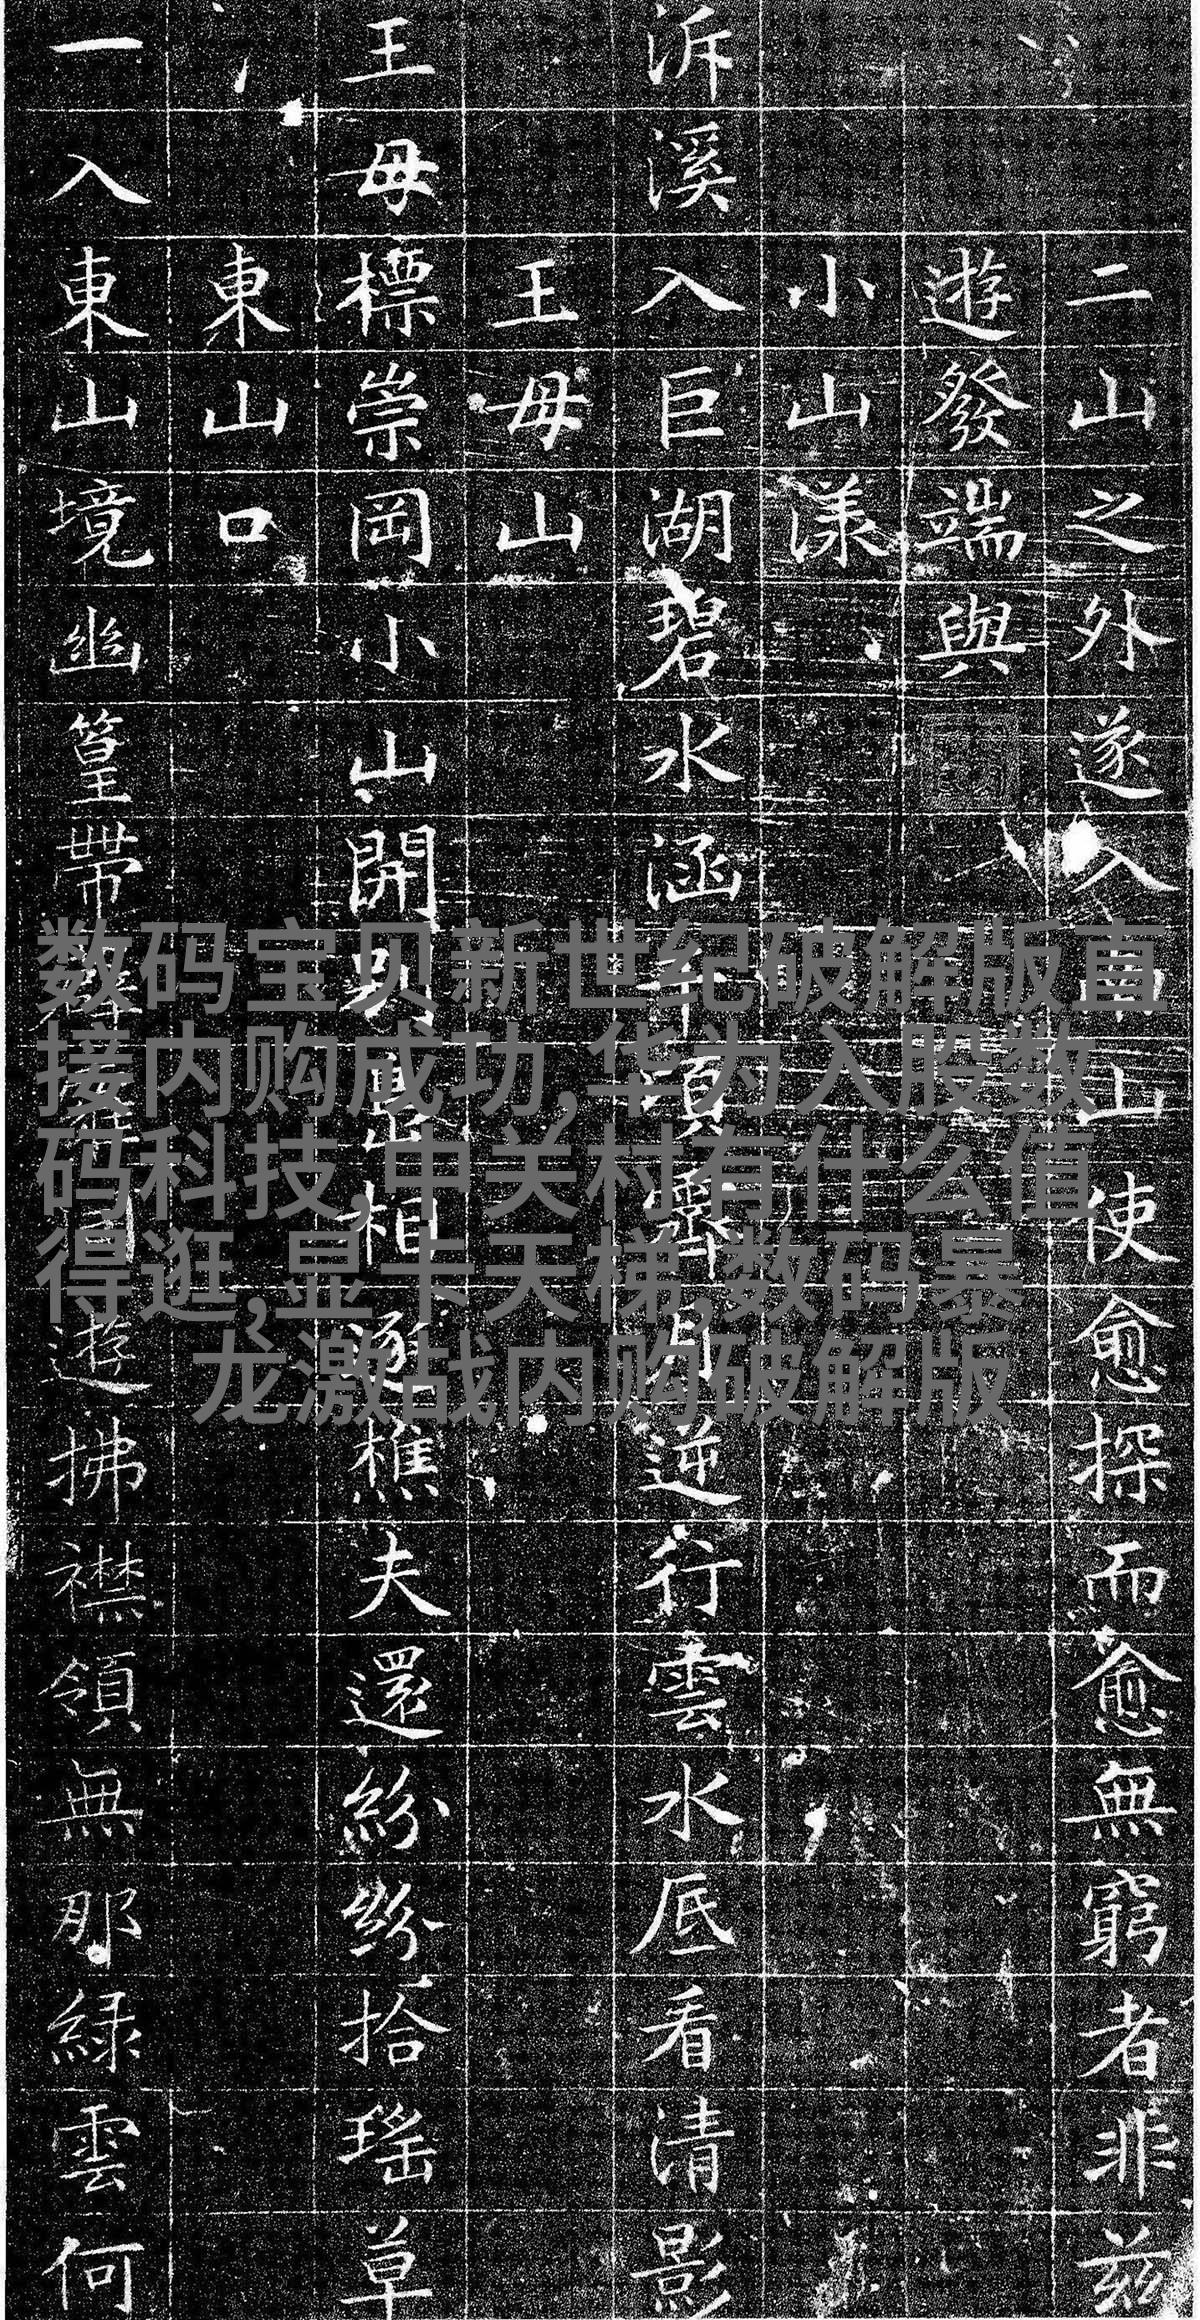 二山之外遂入山使愈探而愈無窮者非兹
遊發端與
小山漾
泝溪入巨湖碧水涵千頃霽月逆行雲水底看清影
王母山
王母標崇岡小山開明堂相逐樵夫還紛紛拾瑤草
東山口
一入東山境幽篁帶遊拂襟領無那綠雲何
数码宝贝新世纪破解版直
接内购成功,华为入股数
码科技,中关村有什么值
得逛,显卡天梯,数码暴
龙激战内购破解版